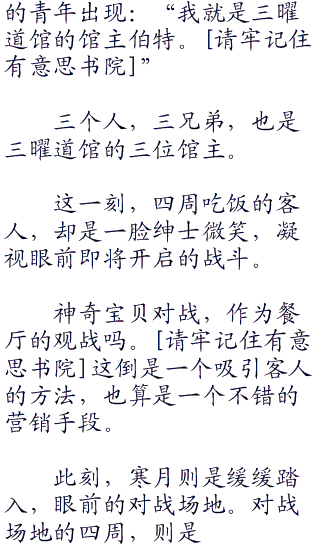 的青年出现：“我就是三曜
道馆的馆主伯特。[请牢记住
有意思书院]”
三个人，三兄弟，也是
三曜道馆的三位馆主。
这一刻，四周吃饭的客
人，却是一脸绅士微笑，凝
视眼前即将开启的战斗。
神奇宝贝对战，作为餐
厅的观战吗。[请牢记住有意
思书院]这倒是一个吸引客人
的方法，也算是一个不错的
营销手段。
此刻，寒月则是缓缓踏
入，眼前的对战场地。对战
场地的四周，则是